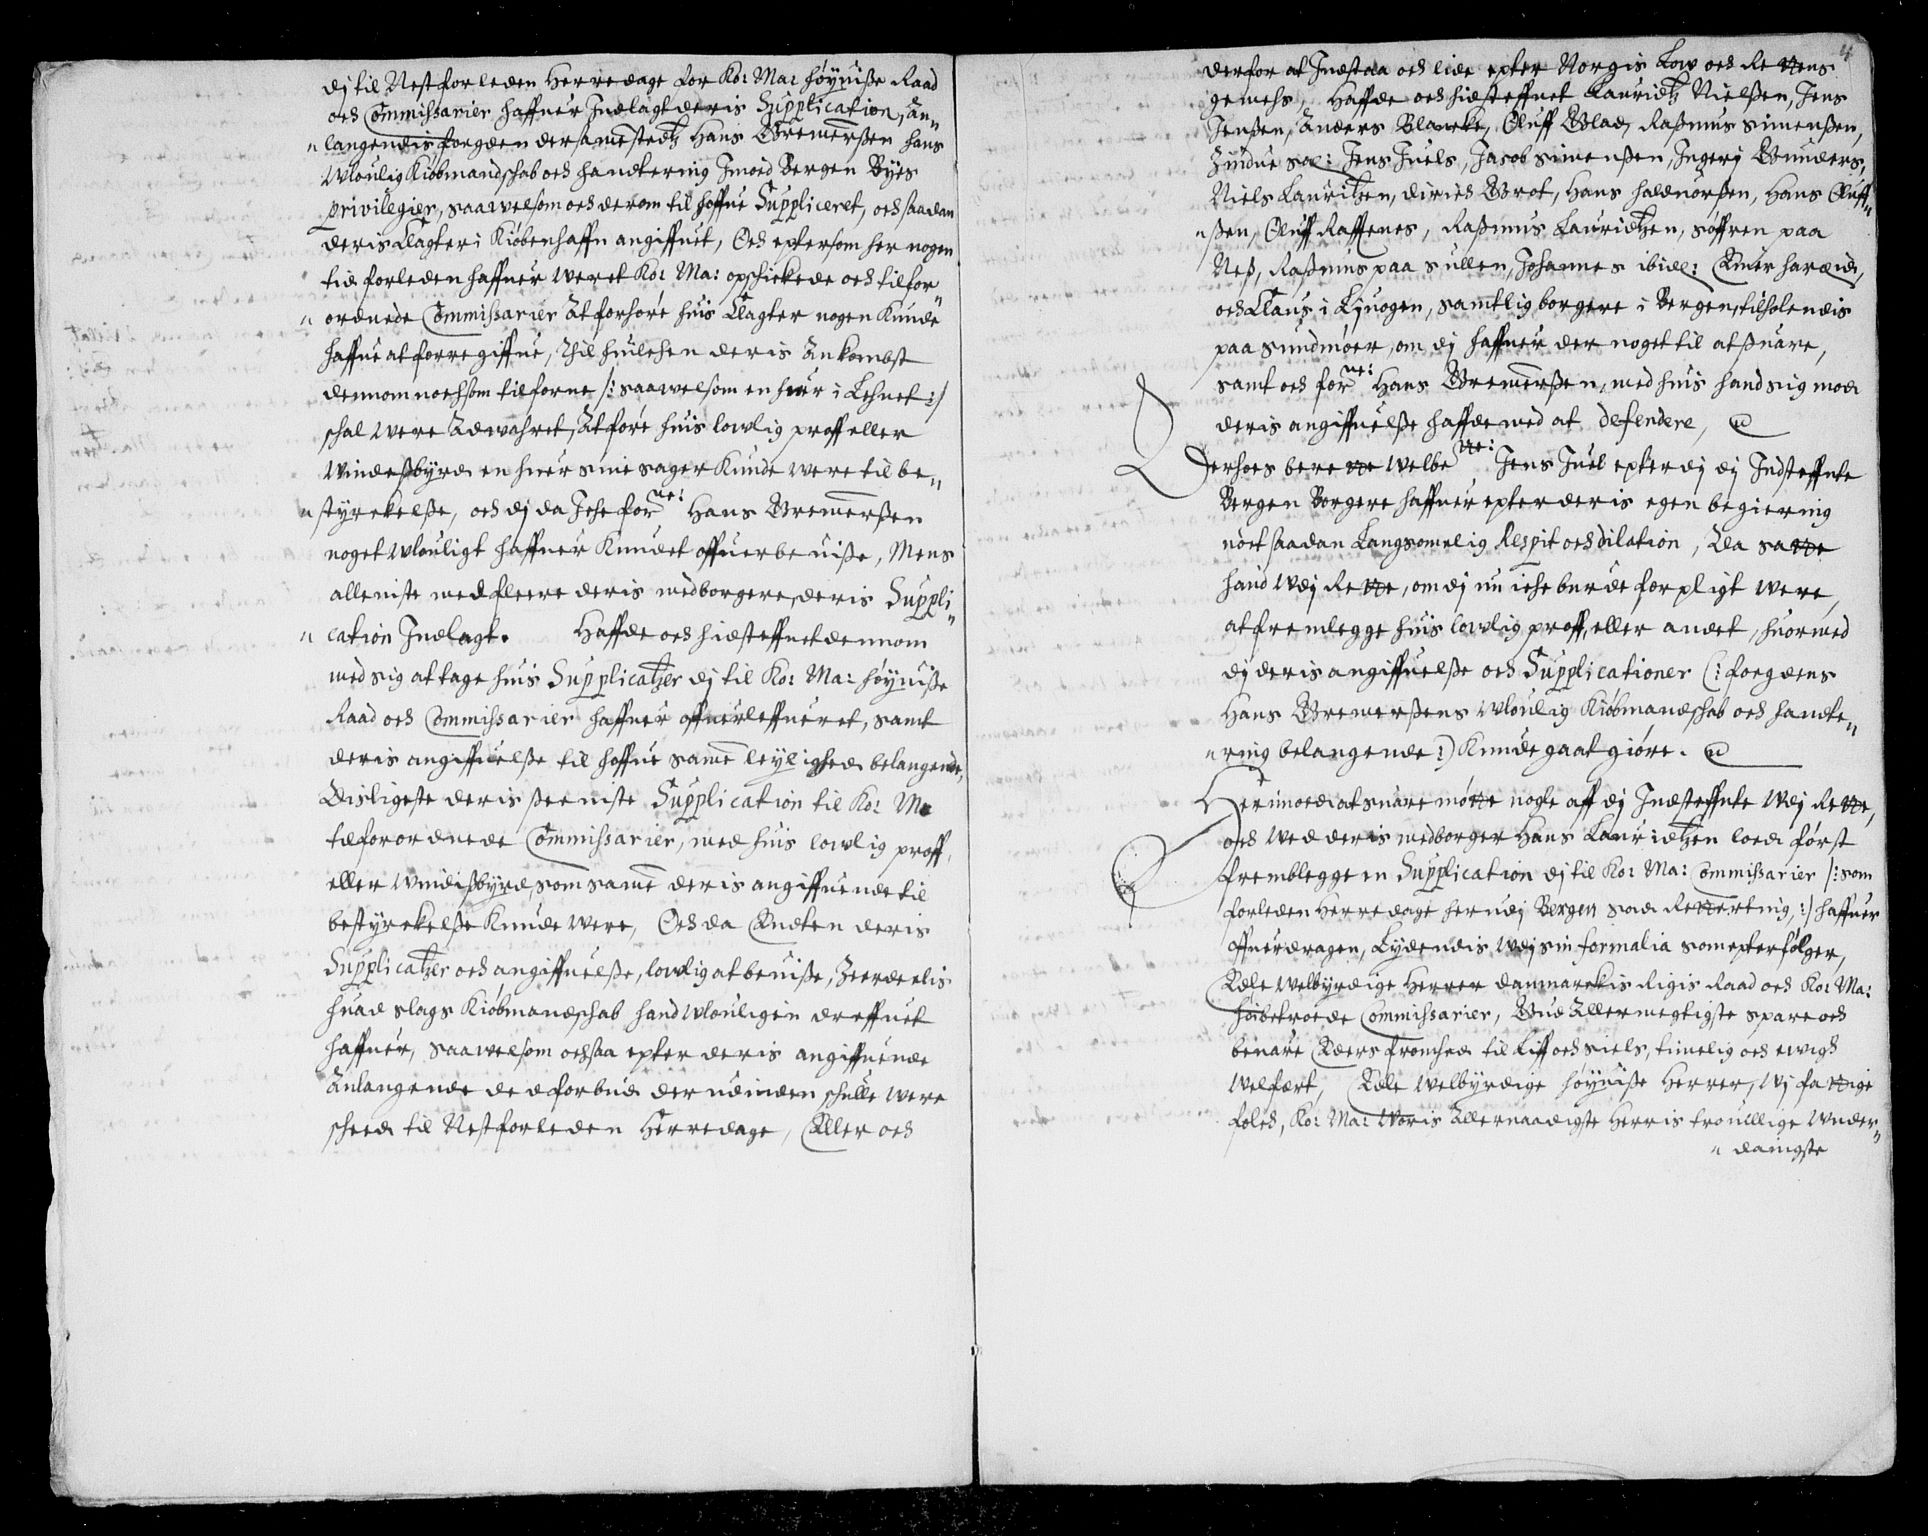 dj til Nestforleden Herredage for Ko: Ma: Høyuiße Raad
och Commissarier haffuer Indlagt deris Supplication, An-
"langendis forgden dersamestedtz Hans Bremerßen hans
Wloulig Kiøbmandschab och handtering Jmod Bergen Byes
privilegier, saauelsom och derom til hoffue Suppliceret, och saadan
deris Clagter i Kiøbenhaffn angiffuet, Och epter som her nogen
tid forleden haffuer weret Ko: Ma: opschickede och tilfor
"ordnede Commissarier At forhøre huis Clagter nogen Kunde
haffue at forregiffue, Thil huilchen deris Ankombst
dennom nochsom tilforne /: saauelsom en huer i Lehnet :/
schal were Adwahret, At føre huis lowlig proff eller
Windeßbyrd en huer sine sager Kunde were til be-
"styrckelße, och dj da Iche forne: Hans Bremerßen
noget Wlouligt haffuer Kundet offuerbeuiße, Mens
alleniste med fleere deris medborgere, deris Suppli
"cation Indlagt. Haffde och hidsteffnet dennom
med sig at tage huis Supplicatzer dj til Ko: Ma: Høyuiße
Raad och Commissarier haffuer offuerleffueret, samt
deris angiffuelße til hoffue same leylighed belangende,
Disligeste deris seeniste Supplication til Ko: Ma
tilforordnede Commissarier, med huis lowlig proff,
eller windißbyrd, som same deris angiffuende til
bestyrckelße Kunde were, Och da Endten deris
Supplicatzer och angiffuelße, lowlig at beuiße, Zeerdeelis
huad slags Kiøbmandschab hand Wlouligen dreffuet
haffuer, saauelsom ochsaa epter deris angiffuende
Anlangende ded forbud der udinden schulle were
scheed til Nestforleden Herredage, Eller och
derfor at Indstaa och lide epter Norgis Low och Rettens
gemehs, Haffde och hidsteffnet Lauridtz Nielßen, Jens
Jenßen, Anders Blancke, Oluff Blad, Raßmus Simenßen,
Zindue sal: Jens Juels, Jacob Simenßen, Ingerj Gunders,
Niels Lauritzen, Dirich Grot, Hans Haldnorßen, Hans Oluff
"ßen, Oluff Raffenes, Raßmus Lauridtzen, Søffren paa
Neß, Raßmus paa Sullen, Johannes ibid: Einer hareid,
och Claus i Liuogen, samtlig borgere i Bergen, tilholendis
paa Sundmøer, om dj haffuer der noget til at suare,
samt och forne: Hans Bremerßen, med huis hand sig mod
deris angiffuelße haffde med at defendere,
Derhoes berette Welbte: Jens Juel epter dj dj Indsteffnte
Bergen Borgere haffuer epter deris egen begiering
nøet saadan Langsomelig Respit och dilation, Da satte
hand Wdj Rette, om dj nu iche burde forpligt were,
at fremlegge huis lowlig proff, eller andet, huormed
dj deris angiffuelße och Supplicationer (: forgdens
Hans Bremerßens Wloulig Kiøbmandschab och handte-
"ring belangende :) Kunde gaat giøre.
Herimod at suare møtte nogle aff dj Indsteffnte Wdj Rette,
och wed deris medborger Hans Lauridtzen loed først
fremblegge en Supplication dj til Ko: Ma: Commissarier /: som
forleden Herredage her udj Bergen sad Rettertinng, :/ haffuer
offuerdragen, Lydendis Wdj sin formalia som epterfølger,
Edle Welbyrdige Herrer Danmarckis Rigis Raad och Ko: Ma:
høibetroede Commissarier, Gud Allermegtigste spare och
beuare Eders fromhed til Liff och siels, timelig och ewigh
Welfært, Edle Welbyrdige Høyuiße Herrer, Wj fattige
folch, Ko: Ma: Woris Allernaadigste Herris trouillige Wnder-
"danigste